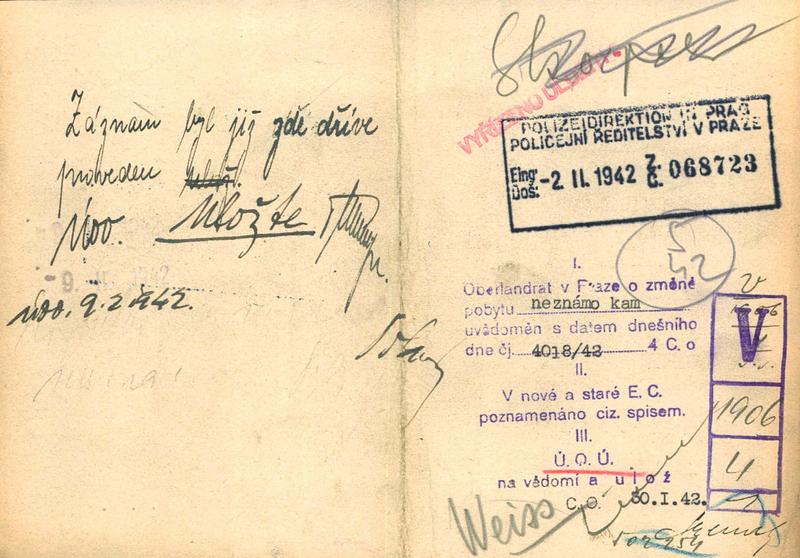 Záznam byl již zde dříve
proveden
Uložte
9.2.1942.
-9. II. 1942
VYŘÍZENO
POLIZEIDIREKTION IN PRAG
POLICEJNÍ ŘEDITELSTVÍ V PRAZE
Eing.
Doš: -2 II. 1942 Z. Č. 068723
5
42
I.
Oberlandrat v Praze o změně
pobytu neznámo kam
uvědoměn s datem dnešního
dne čj. 4018/42 4 C. o
II.
V nové a staré E. C.
poznamenáno ciz. spisem.
III.
Ú. O. Ú.
na vědomí a ulož
C. O. 30.I.42.
V
1906
4
Weiss